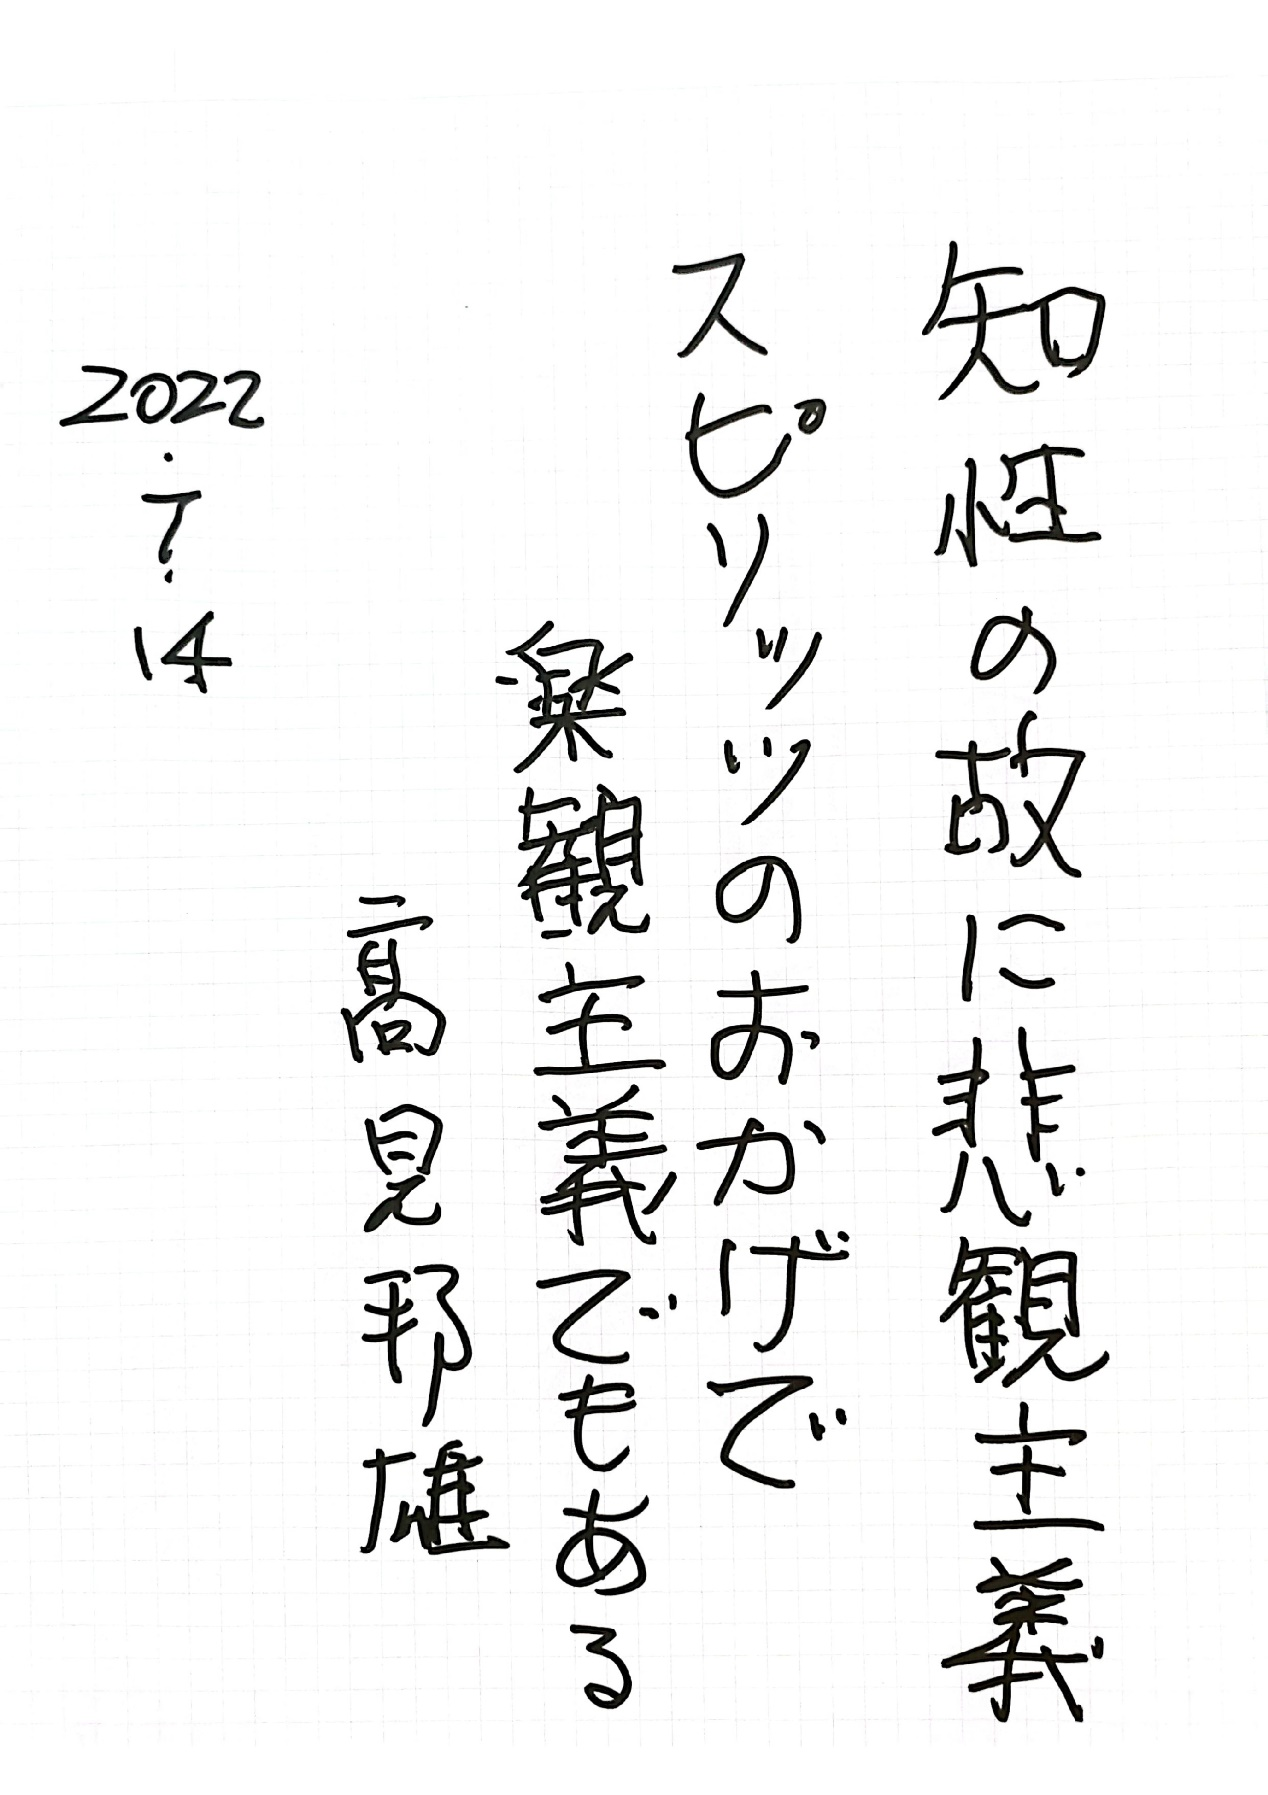 知性の故に悲観主義
スピリッツのおかげで
楽観主義でもある
髙見邦雄
2022.7.14